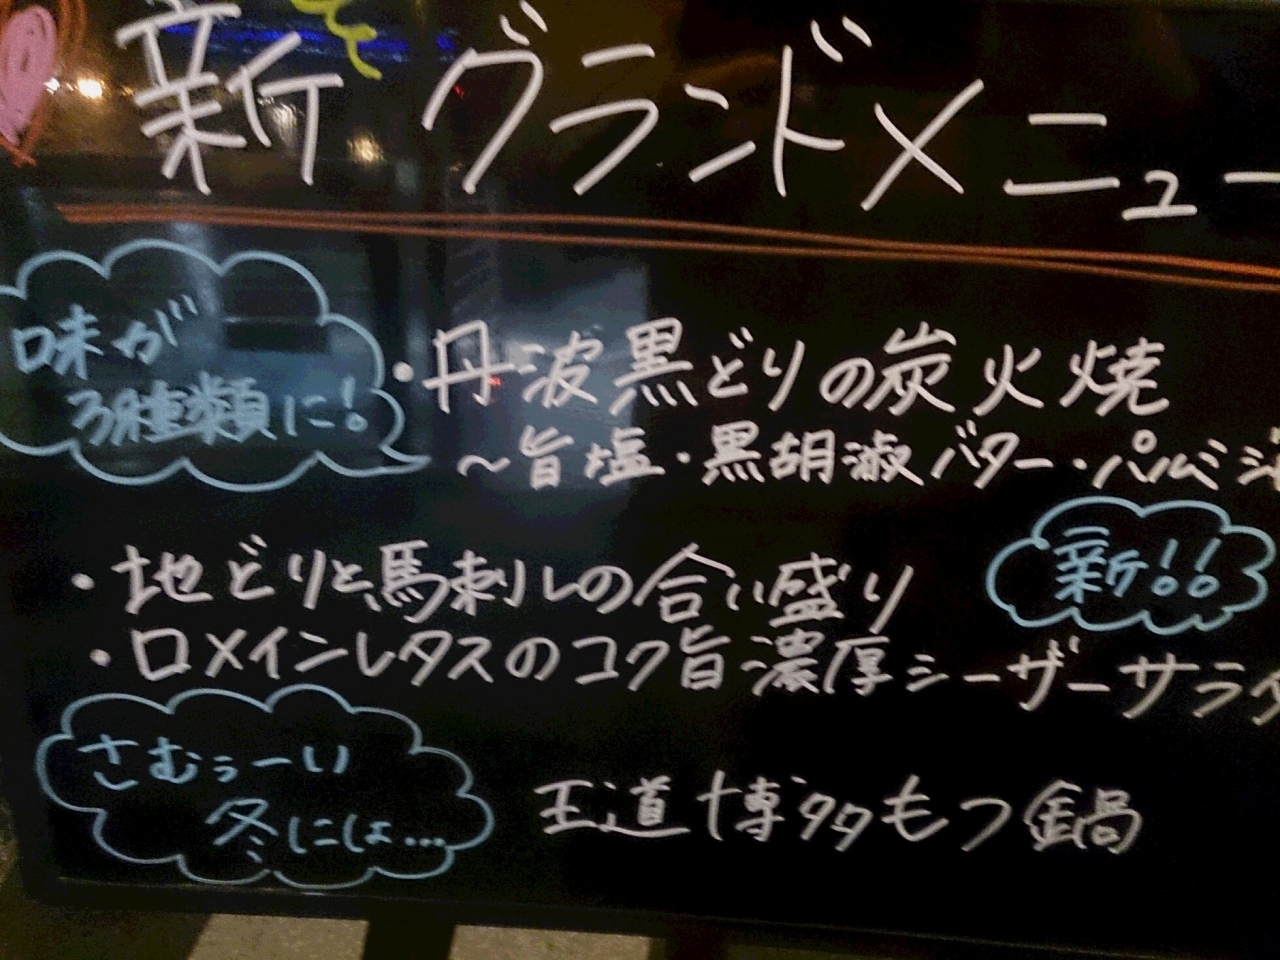 新グランドメニュー
味が
3種類に!
・丹波黒どりの炭火焼
～旨塩・黒胡淑バター・パルミジ
・地どりと馬刺しの合い盛り
新!!
・ロメインレタスのコク旨濃厚シーザーサラダ
さむぅーい
冬には…
王道博多もつ鍋